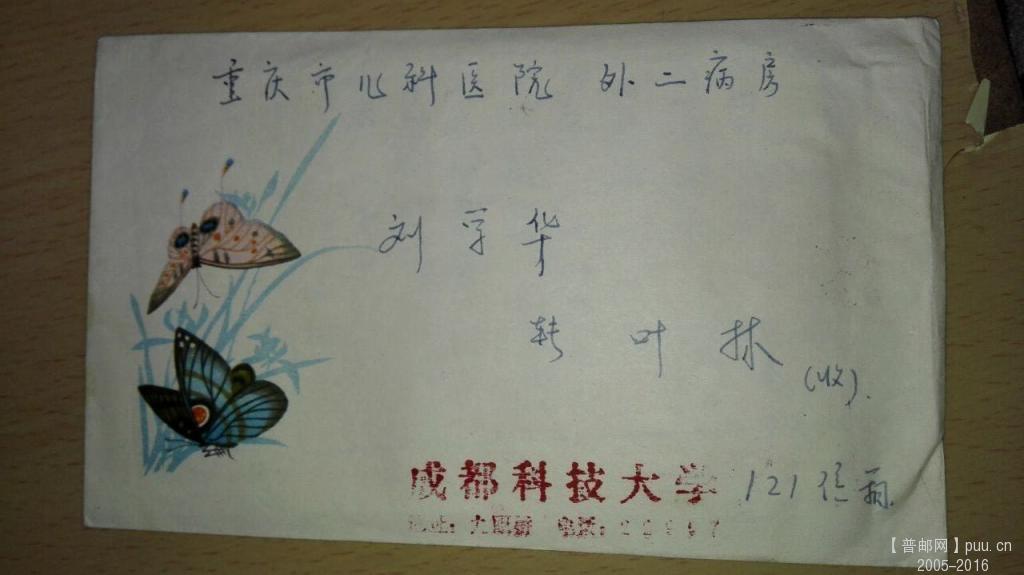 重庆市儿科医院 外二病房
刘学华
转 叶林
(收).
成都科技大学 121信箱
地址: 九眼桥 电话:
【普邮网】puu.cn
2005-2016